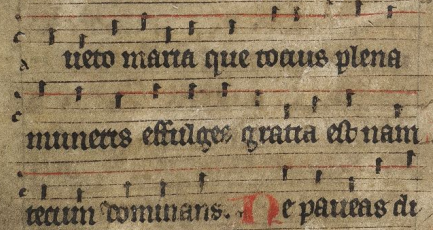 ueto maria que tocius plena
muneris effulges gratia est nam
tecum dominans. Ne paueas di